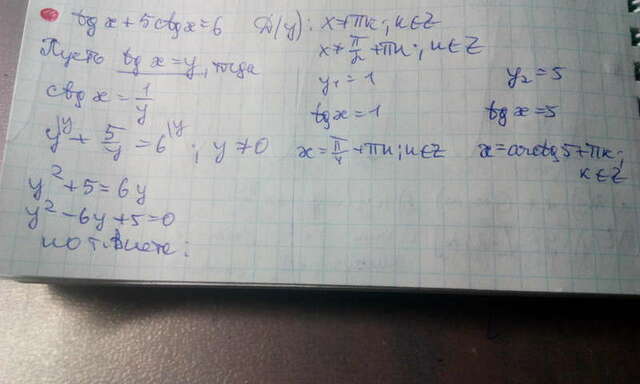 tg x + 5ctg x = 6 D(y): x ≠ πk; k∈Z
x ≠ π/2 + πk; k∈Z
Пусть tg x = y, тогда
ctg x = 1/y
y + 5/y = 6; y ≠ 0
y² + 5 = 6y
y² - 6y + 5 = 0
по т. Виета:
y₁ = 1 y₂ = 5
tg x = 1 tg x = 5
x = π/4 + πk; k∈Z x = arctg 5 + πk;
k∈Z